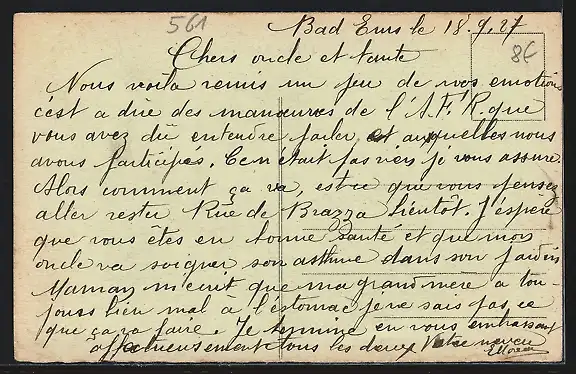 561
Bad Ems le 18.9.27
8€
Chers oncle et tante
Nous voila remis un peu de nos emotions
c'est a dire des manœuvres de l'A.F.R. que
vous avez dû entendre parler et auxquelles nous
avons participés. Ce n'était pas rien je vous assure
Alors comment ça va, est ce que vous pensez
aller rester Rue de Brazza bientôt. J'éspère
que vous êtes en bonne santé et que mon
oncle va soigner son asthme dans son jardin
Maman m'ecrit que ma grand mere a tou-
jours bien mal à l'éstomac je ne sais pas ce
que ça va faire. Je termine en vous embrassant
affectueusement tous les deux Votre neveu